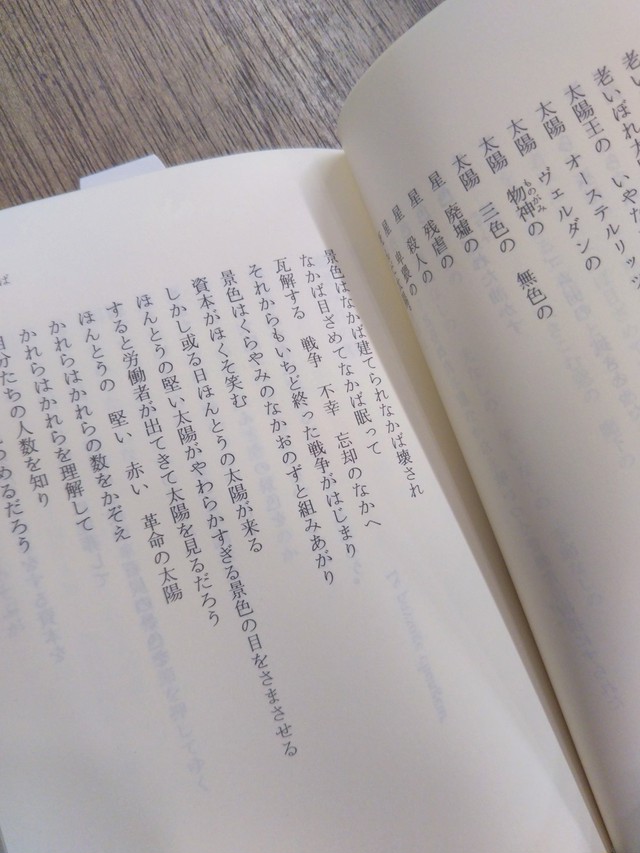 老い
老いぼれ
太陽王の オーステルリッツ
太陽 ヴェルダンの
太陽 物神の 無色の
ものがみ
太陽 三色の
太陽 廃墟の
星 残虐の
星 殺人の
星
景色はなかば建てられなかば壊され
なかば目ざめてなかば眠って
瓦解する 戦争 不幸 忘却のなかへ
それからもいちど終った戦争がはじまり
景色はくらやみのなかおのずと組みあがり
資本がほくそ笑む
しかし或る日ほんとうの太陽が来る
ほんとうの堅い太陽がやわらかすぎる景色の目をさまさせる
すると労働者が出てきて太陽を見るだろう
ほんとうの 堅い 赤い 革命の太陽
かれらはかれらの数をかぞえ
かれらはかれらを理解して
自分たちの人数を知り
めるだろう
ば